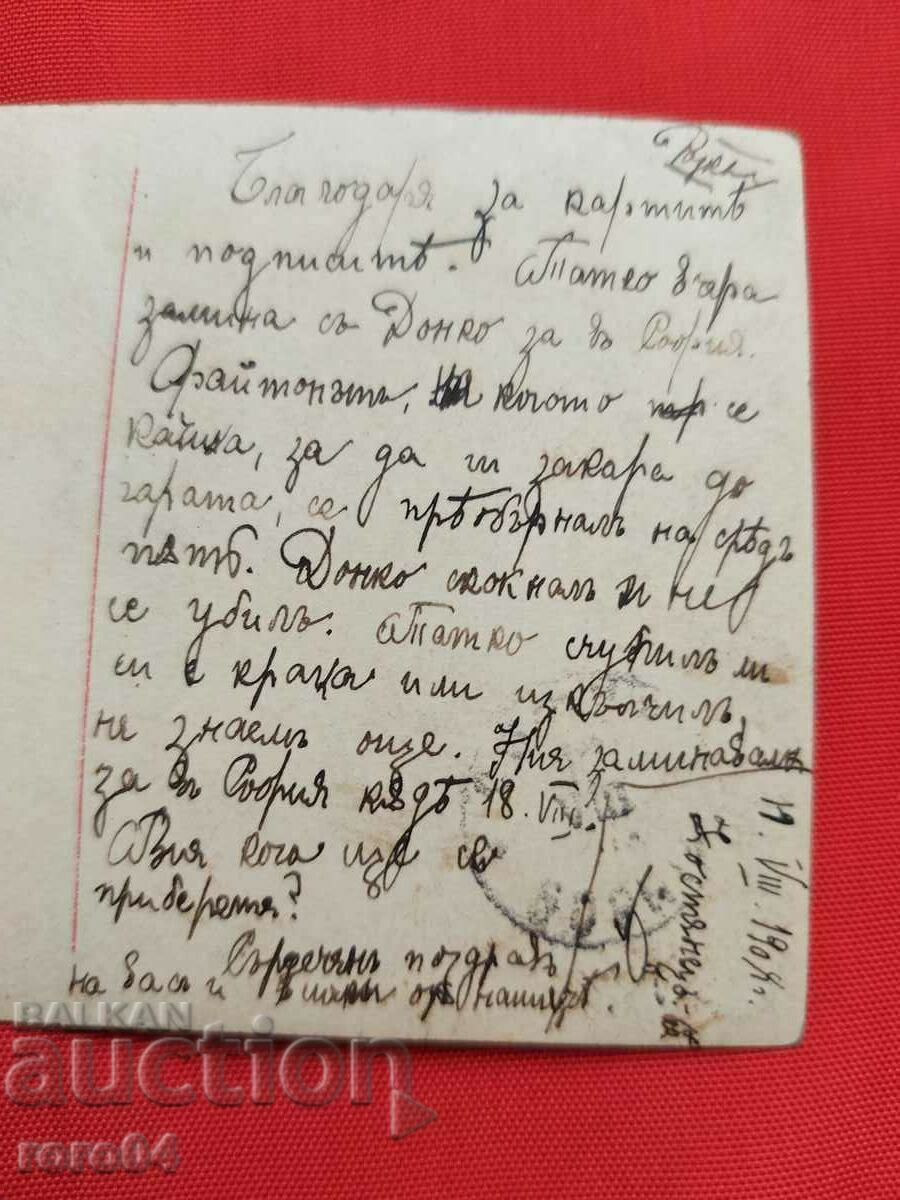 Благодаря за картитѣ
и подписитѣ. Татко вчера
замина съ Донко за въ София.
Файтонътъ, на който се
качиха, за да ги закара до
гарата, се прѣобърналъ на срѣдъ
пѫть. Донко скокналъ и не
се убилъ. Татко счупилъ ли
си е крака или изкълчилъ,
не знаемъ още. Ния заминавамъ
за въ София кѫдѣ 18. VIII.
Вия кога ще се
приберете?
Сърдеченъ поздравъ
на васъ и отъ нашитѣ.
VIII. 190
Костянецъ
BALKAN
auction
roro04